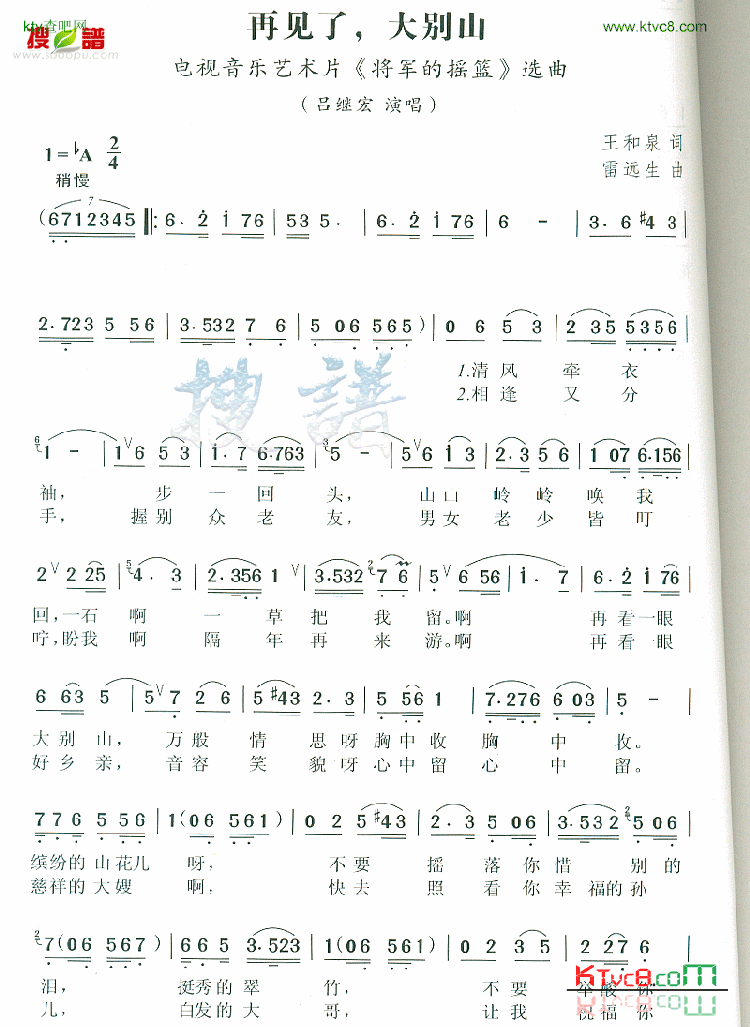 ktv查吧网
搜 谱
www.souopu.com
www.ktvc8.com
再见了，大别山
电视音乐艺术片《将军的摇篮》选曲
（吕继宏 演唱）
1=♭A 2/4
稍慢
王和泉 词
雷远生 曲
7
(6712345 ‖: 6. 2 1 76 | 53 5. | 6. 2 1 76 | 6 - | 3. 6 #4 3
2.723 5 56 | 3.532 7 6 | 5 06 565) | 0 6 5 3 | 2 35 5356
1.清 风 牵 衣
2.相 逢 又 分
搜谱
6 1 - ∨ | 1 6 5 3 | 1. 7 6.763 | 3 5 - ∨ | 5 6 1 3 | 2. 3 5 6 | 1 07 6.156
袖， 步 一 回 头， 山 山 岭 岭 唤 我
手， 握别 众 老 友， 男女 老 少 皆 叮
2 ∨ 2 25 | 5 4. 3 | 2.356 1 ∨ | 3.532 2 7 6 | 5 ∨ 6 56 | 1. 7 | 6. 2 1 76
回，一石 啊 一 草 把 我 留。啊 再 看 一眼
咛，盼我 啊 隔 年 再 来 游。啊 再 看 一眼
6 63 5 ∨ | 5 7 2 6 | 5 #43 2 | 3. 5 2 | 5 56 1 | 7.276 6 03 | 5 -
大 别 山， 万 般 情 思 呀 胸中 收 胸 中 收。
好 乡 亲， 音 容 笑 貌 呀 心中 留 心 中 留。
77 6 5 56 | 1 (06 561) | 0 2 5 #43 | 2. 3 5 06 | 3.532 2 5 06
缤纷的 山 花儿 呀， 不 要 摇 落 你 惜 别 的
慈祥的 大 嫂 啊， 快 去 照 看 你 幸 福的 孙
2 7 (06 567) | 66 5 3.523 | 7 (06 567) | 0 2 3 5 | 2 27 6
泪， 挺秀的 翠 竹， 不 要 举酸 你
儿， 白发的 大 哥， 让 我 祝福 你
KTvc8.com